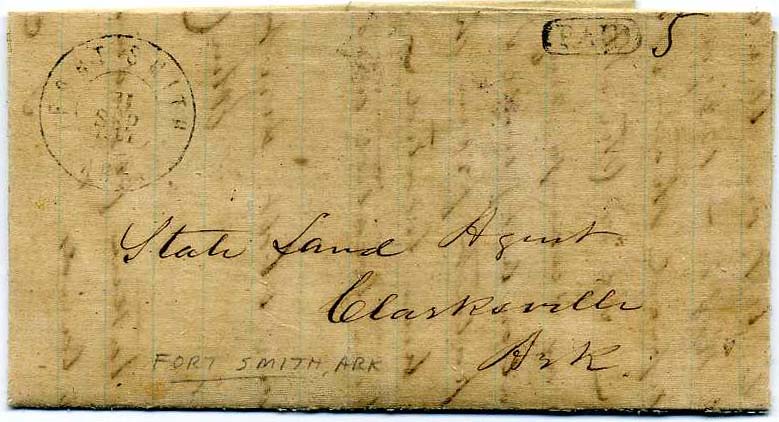 FORT SMITH
ARK
PAID 5
State Land Agent
Clarksville
Ark.
FORT SMITH, ARK